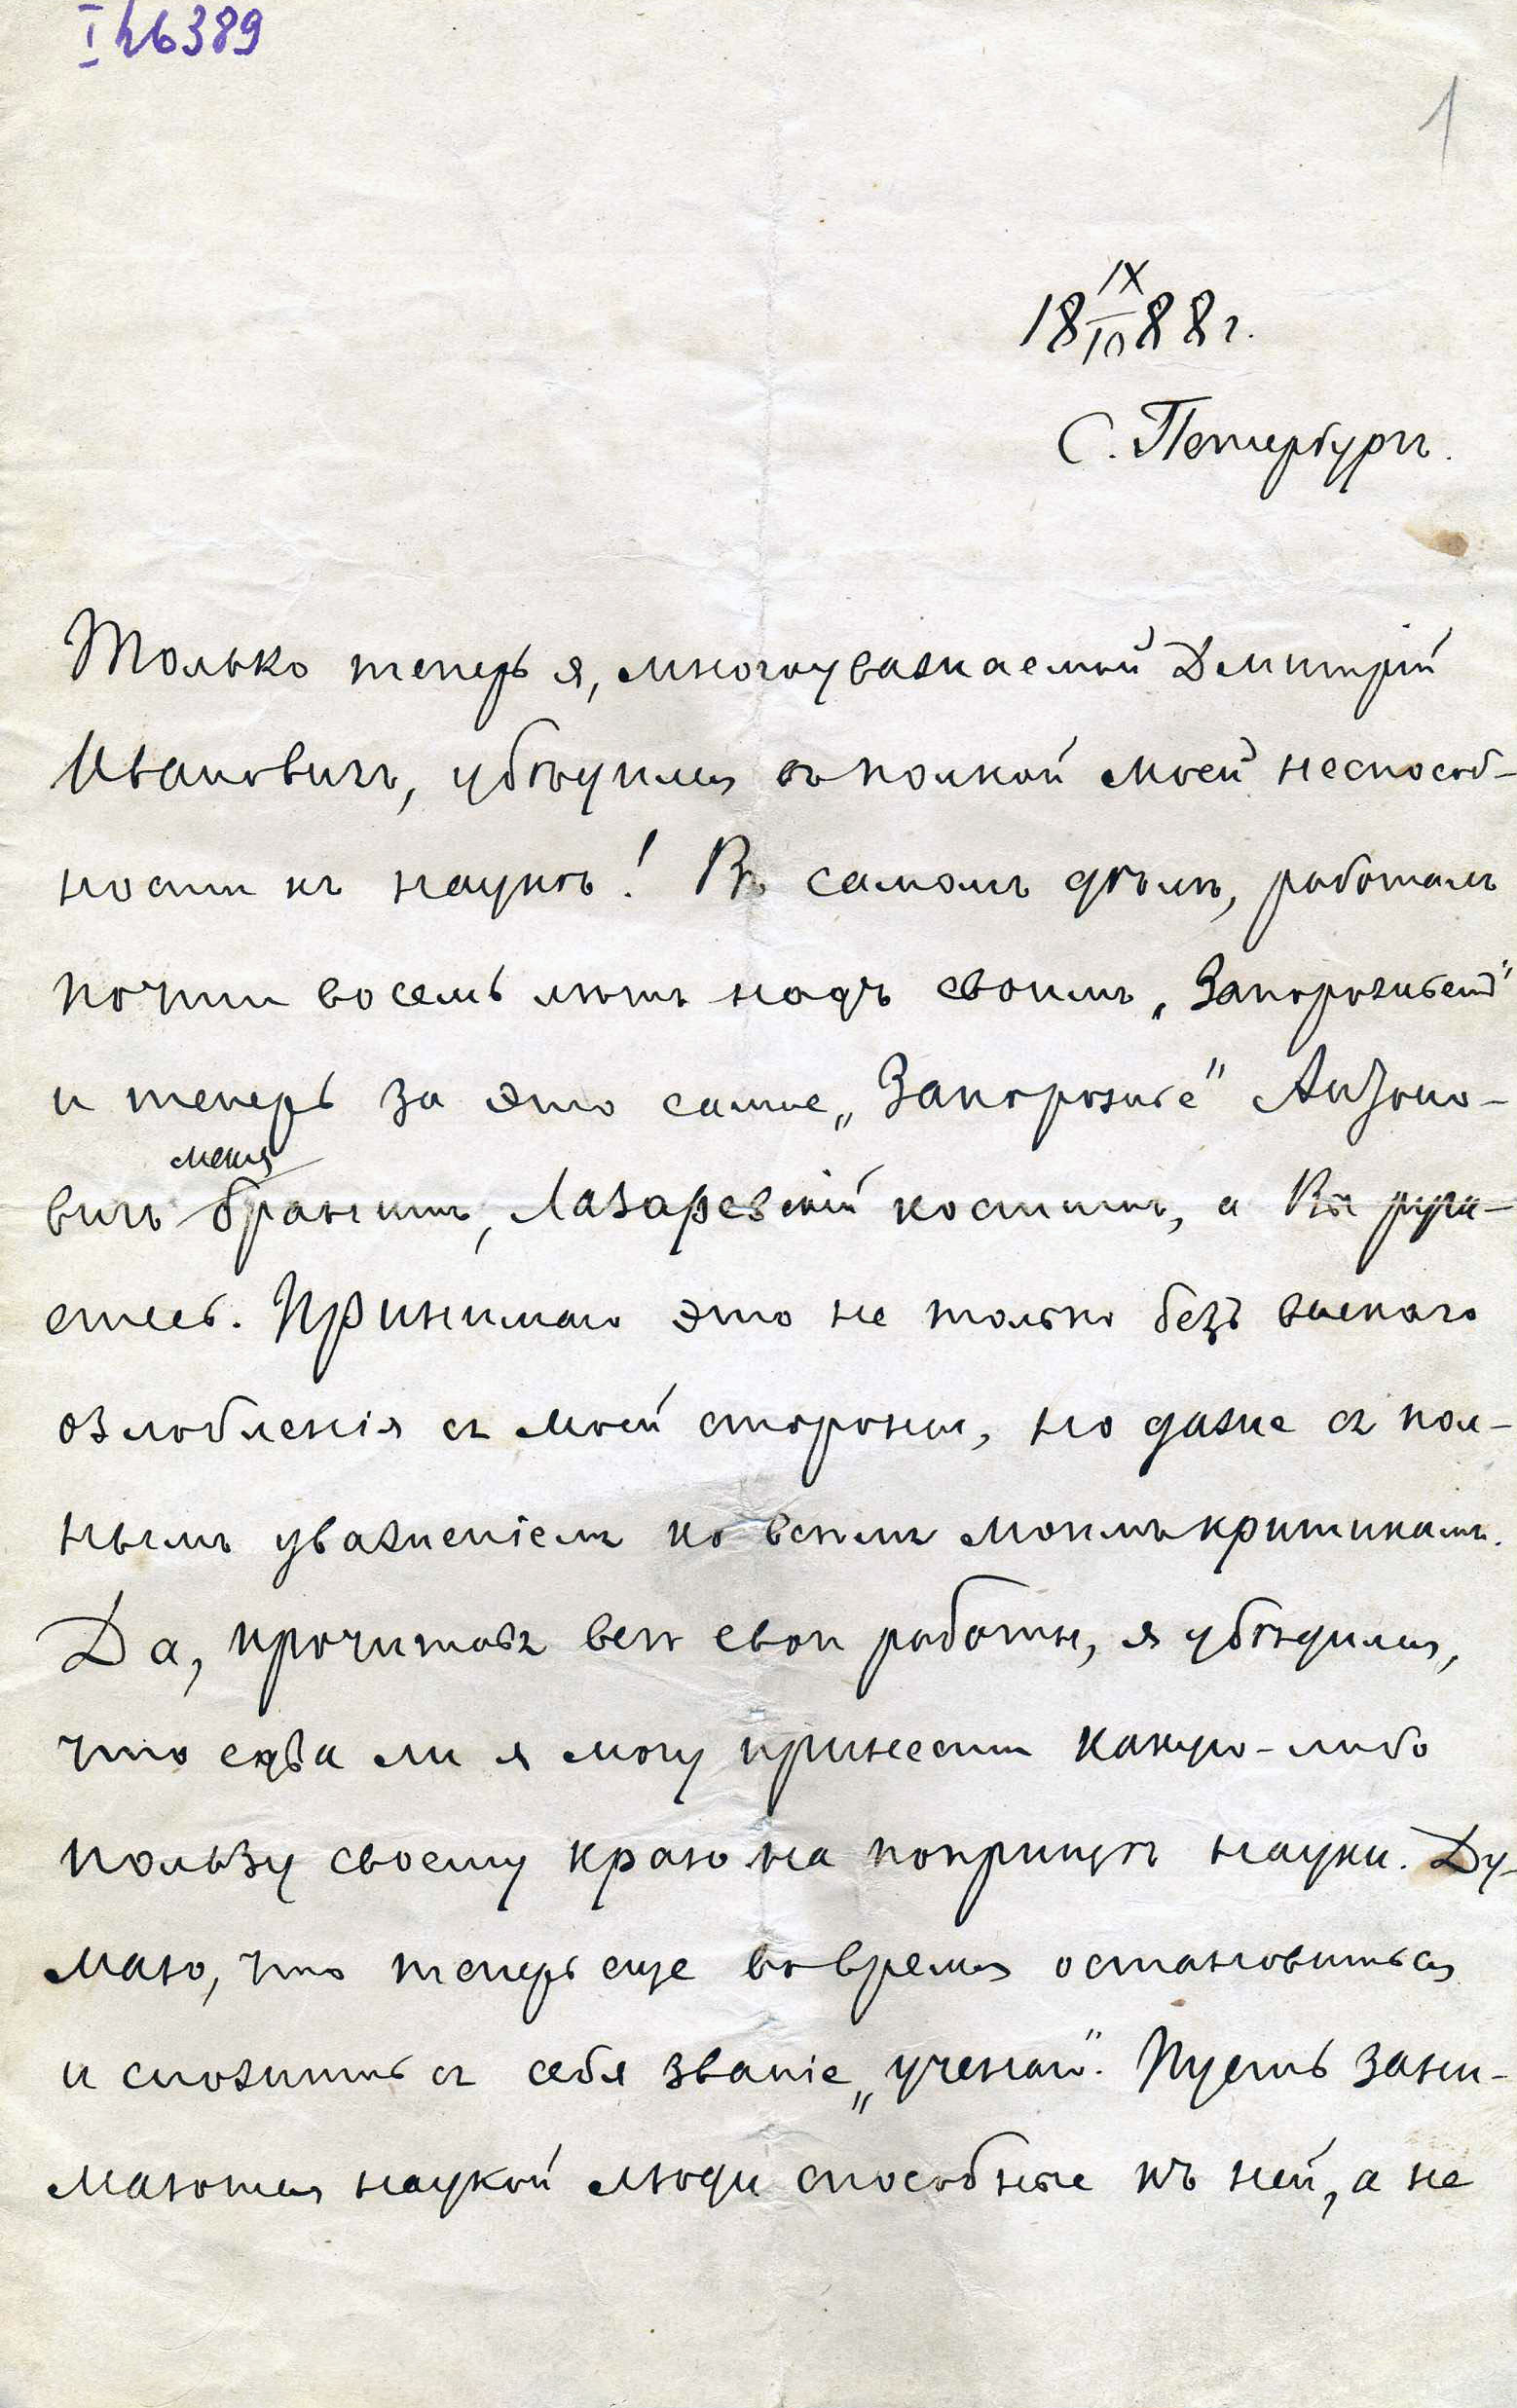 I 26389
1
18 IX/10 88 г.
С. Петербургъ.
Только теперь я, многоуважаемый Дмитрій
Ивановичъ, убѣдился въ полной моей неспособ-
ности къ наукѣ! Въ самомъ дѣлѣ, работалъ
почти восемь лѣтъ надъ своимъ „Запорожьемъ"
и теперь за это самое „Запорожье" Антоно-
вичъ меня бранитъ, Лазаревскій коститъ, а Вы руга-
етесь. Принимаю это не только безъ всякаго
озлобленія съ моей стороны, но даже съ пол-
нымъ уваженіемъ ко всѣмъ моимъ критикамъ.
Да, прочитавъ всѣ свои работы, я убѣдился,
что едва ли я могу принести какую-либо
пользу своему краю на поприщѣ науки. Ду-
маю, что теперь еще во время остановиться
и сложить съ себя званіе „ученаго". Пусть зани-
маются наукой люди способные къ ней, а не